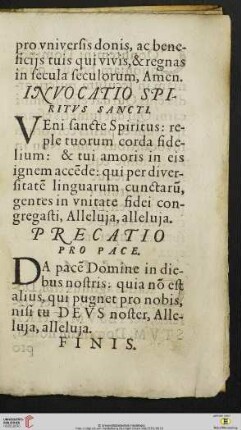 pro vniversis donis, ac bene-
ficijs tuis qui vivis, & regnas
in secula seculorum, Amen.
INVOCATIO SPI-
RITVS SANCTI.
VEni sancte Spiritus: re-
ple tuorum corda fide-
lium: & tui amoris in eis
ignem accẽde: qui per diver-
sitatẽ linguarum cunctarũ,
gentes in vnitate fidei con-
gregasti, Alleluja, alleluja.
PRECATIO
PRO PACE.
DA pacẽ Domine in die-
bus nostris: quia nõ est
alius, qui pugnet pro nobis,
nisi tu DEVS noster, Alle-
luja, alleluja.
FINIS.